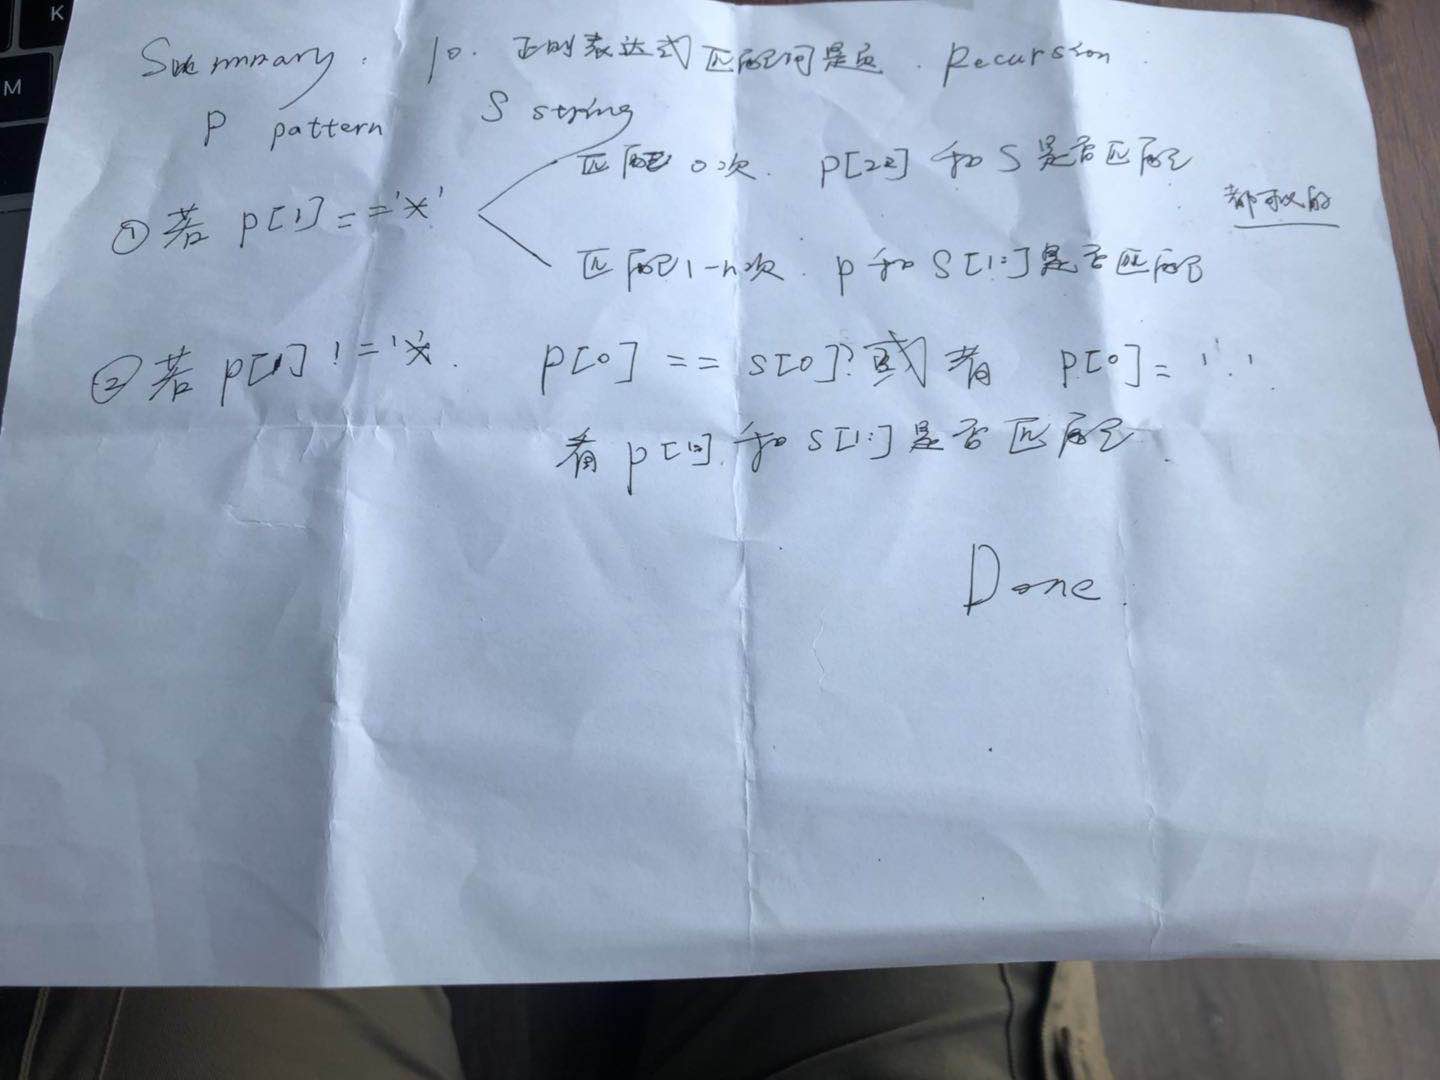 Summary. 10. 正则表达式匹配问题. Recursion
P pattern S string
匹配0次. p[2:] 和 S 是否匹配
① 若 p[1] == '*'
匹配1-n次. p 和 S[1:] 是否匹配
② 若 p[1] != '* . p[0] == s[0] 或者 p[0] = '.'
看 p[1:] 和 s[1:] 是否匹配.
Done.